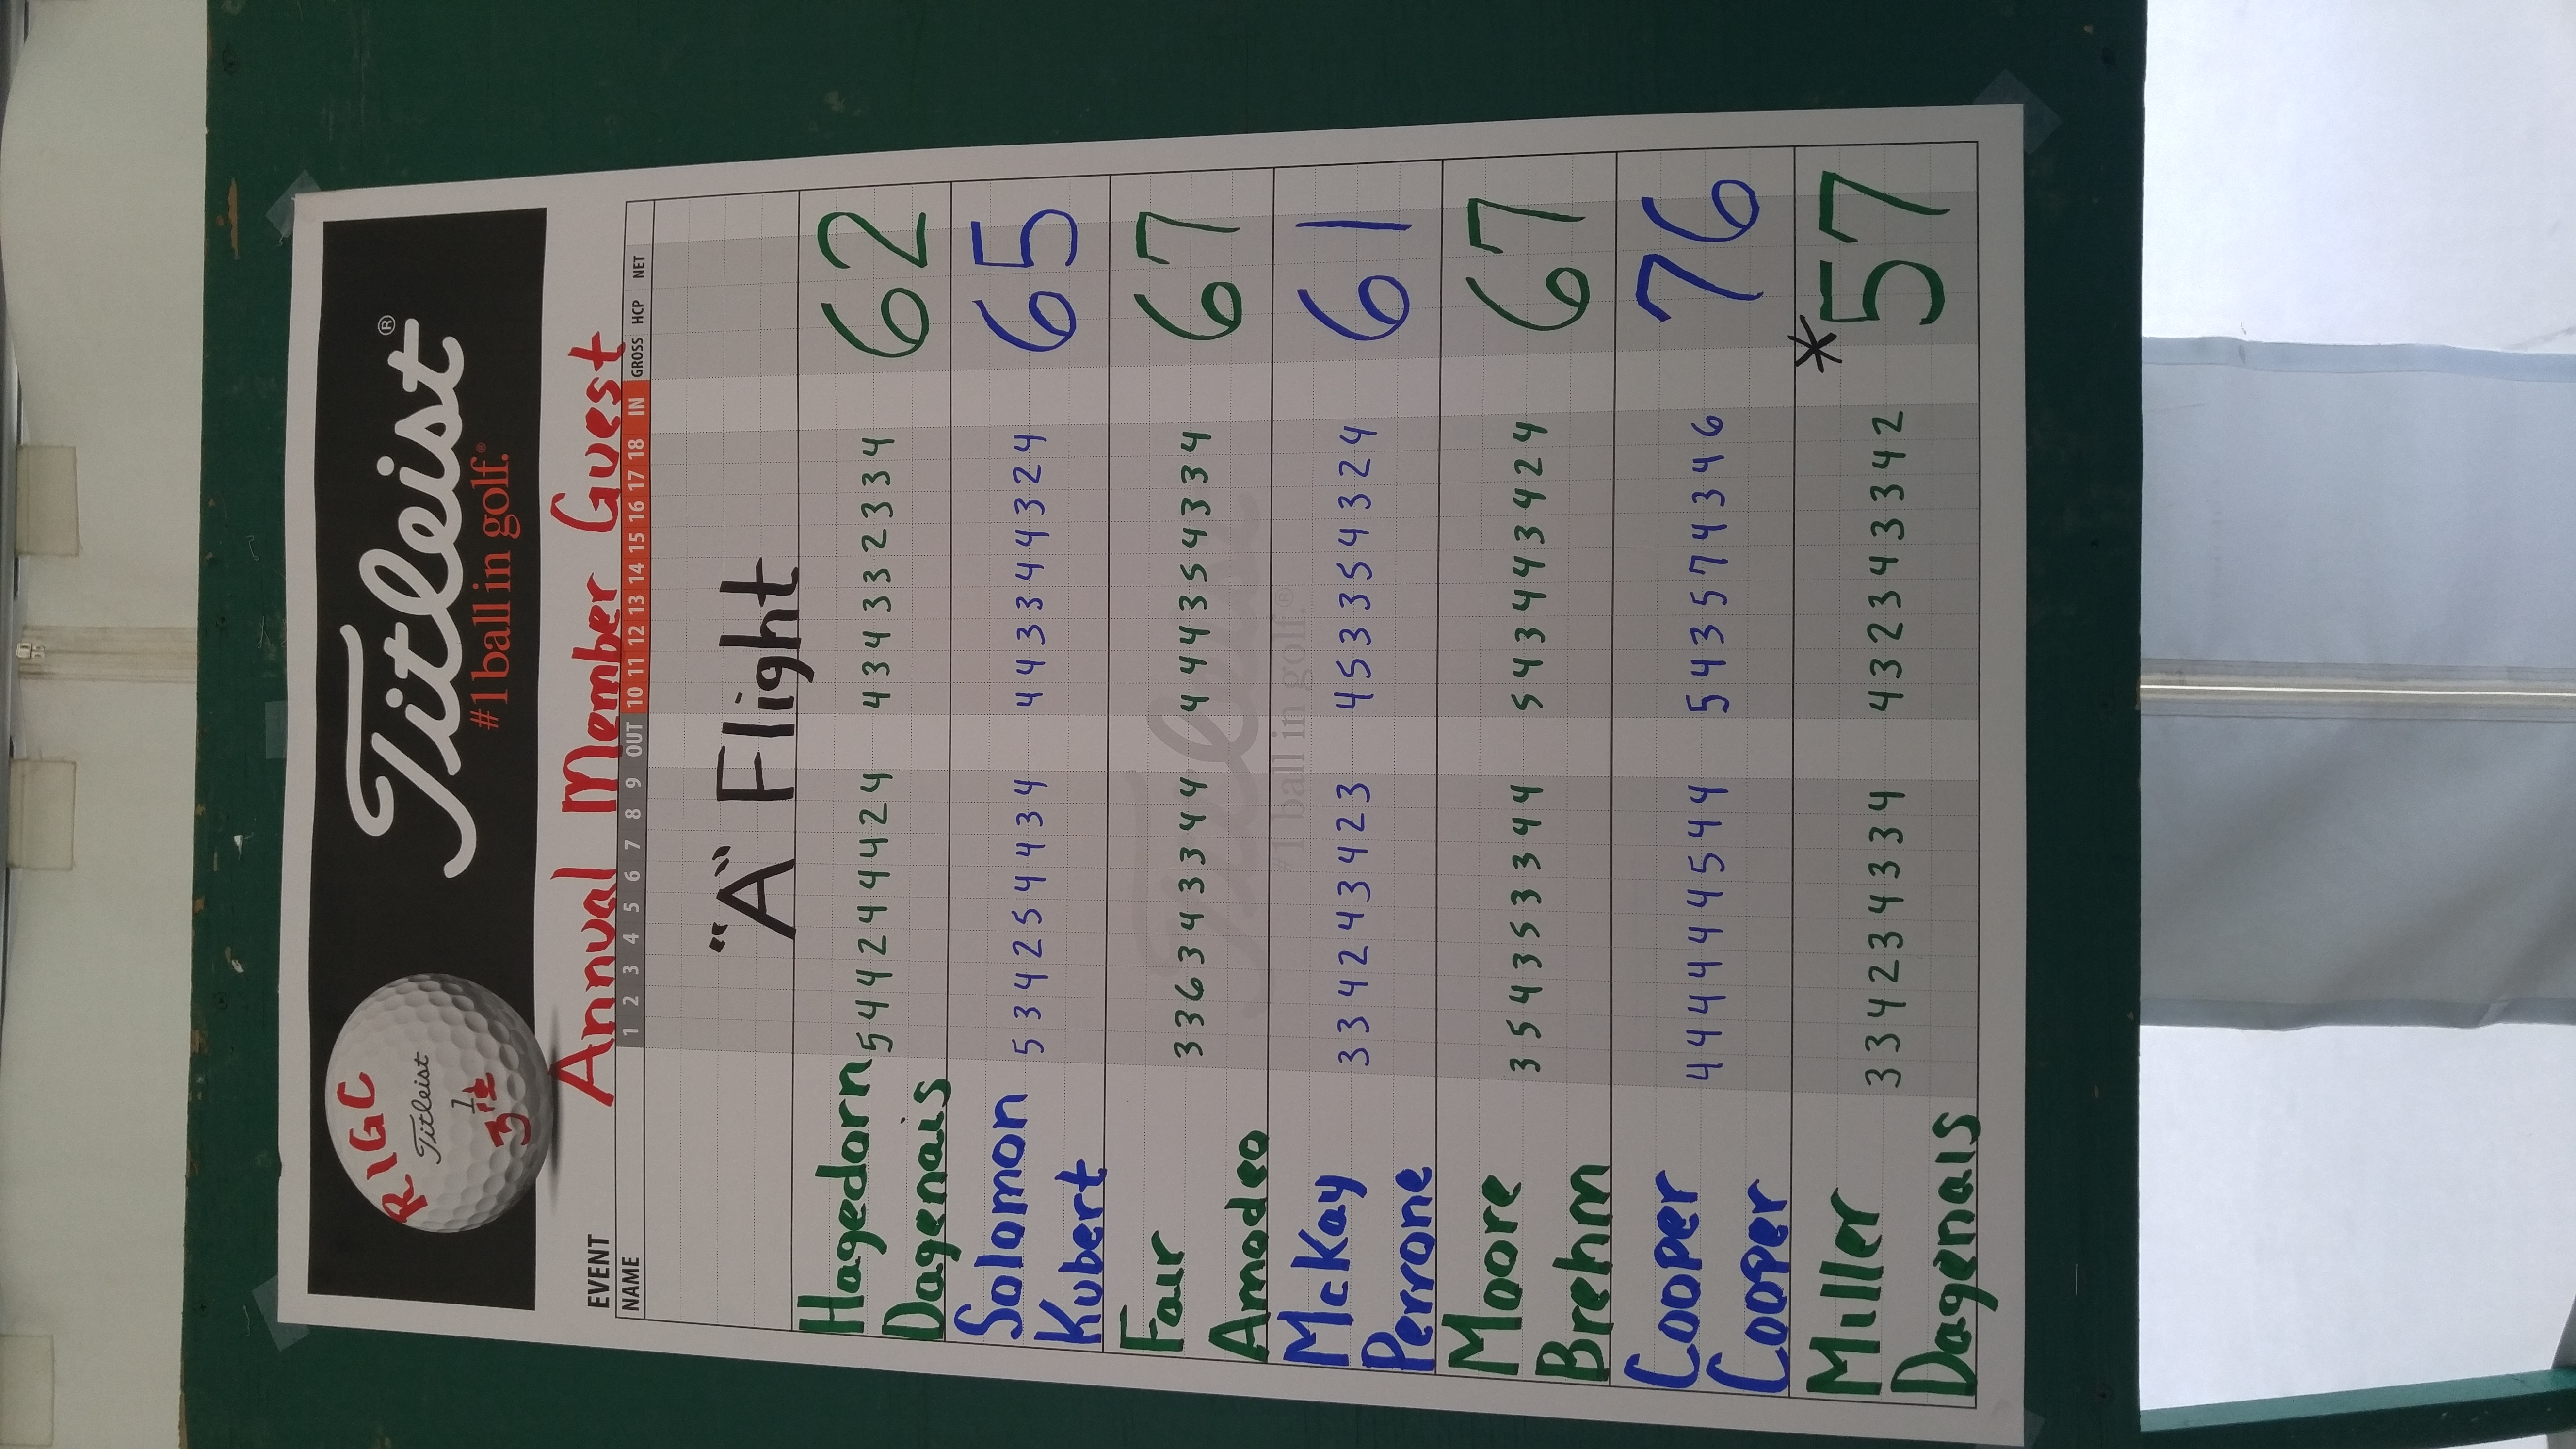 RIGC
Titleist
1
3
Titleist®
#1 ball in golf.®
EVENT Annual Member Guest
NAME 1 2 3 4 5 6 7 8 9 OUT 10 11 12 13 14 15 16 17 18 IN GROSS HCP NET
"A" Flight
Hagedorn 5 4 4 2 4 4 4 2 4 4 3 4 3 3 2 3 3 4 62
Dagenais
Solomon 5 3 4 2 5 4 4 3 4 4 4 3 3 4 4 3 2 4 65
Kubert
Fair 3 3 6 3 4 3 3 4 4 4 4 4 3 5 4 3 3 4 67
Amodeo
McKay 3 3 4 2 4 3 4 2 3 4 5 3 3 5 4 3 2 4 61
Perrone
Moore 3 5 4 3 5 3 3 4 4 5 4 3 4 4 3 4 2 4 67
Brehm
Cooper 4 4 4 4 4 4 5 4 4 5 4 3 5 7 4 3 4 6 76
Cooper
Miller 3 3 4 2 3 4 3 3 4 4 3 2 3 4 3 3 4 2 *57
Dagenais
Titleist
#1 ball in golf.®